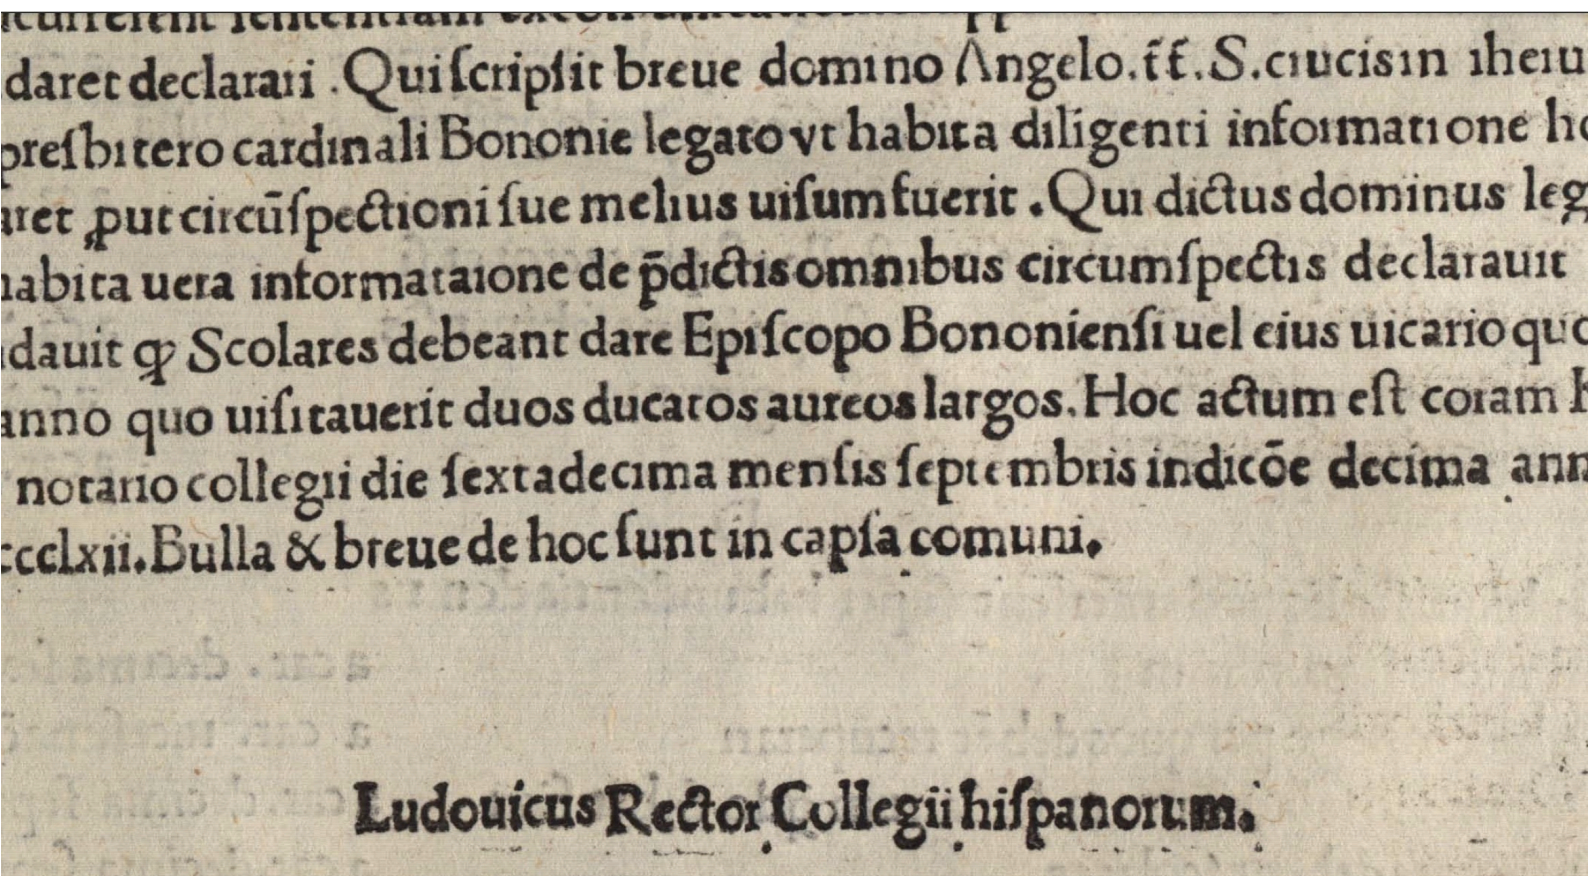 daret declarari .Qui ſcripſit breue domino Angelo.tt̄.S.crucis in iheru
preſbitero cardinali Bononie legato vt habita diligenti informatione
ꝓut circūſpectioni ſue melius uiſum fuerit .Qui dictus dominus leg
habita uera informataione de p̄dictis omnibus circumſpectis declarauit
dauit ꝙ Scolares debeant dare Epiſcopo Bononienſi uel eius uicario quo
anno quo uiſitauerit duos ducatos aureos largos.Hoc actum est coram
notario collegii die ſextadecima menſis ſeptembris indicōe decima ann
cccclxii.Bulla & breue de hoc ſunt in capſa comuni.
Ludouicus Rector Collegii hiſpanorum.